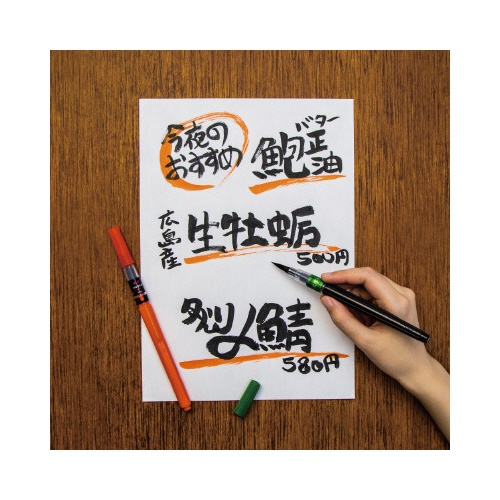 今夜の
おすすめ
鮑バター正油
広島産
生牡蛎
500円
〆鯖
580円